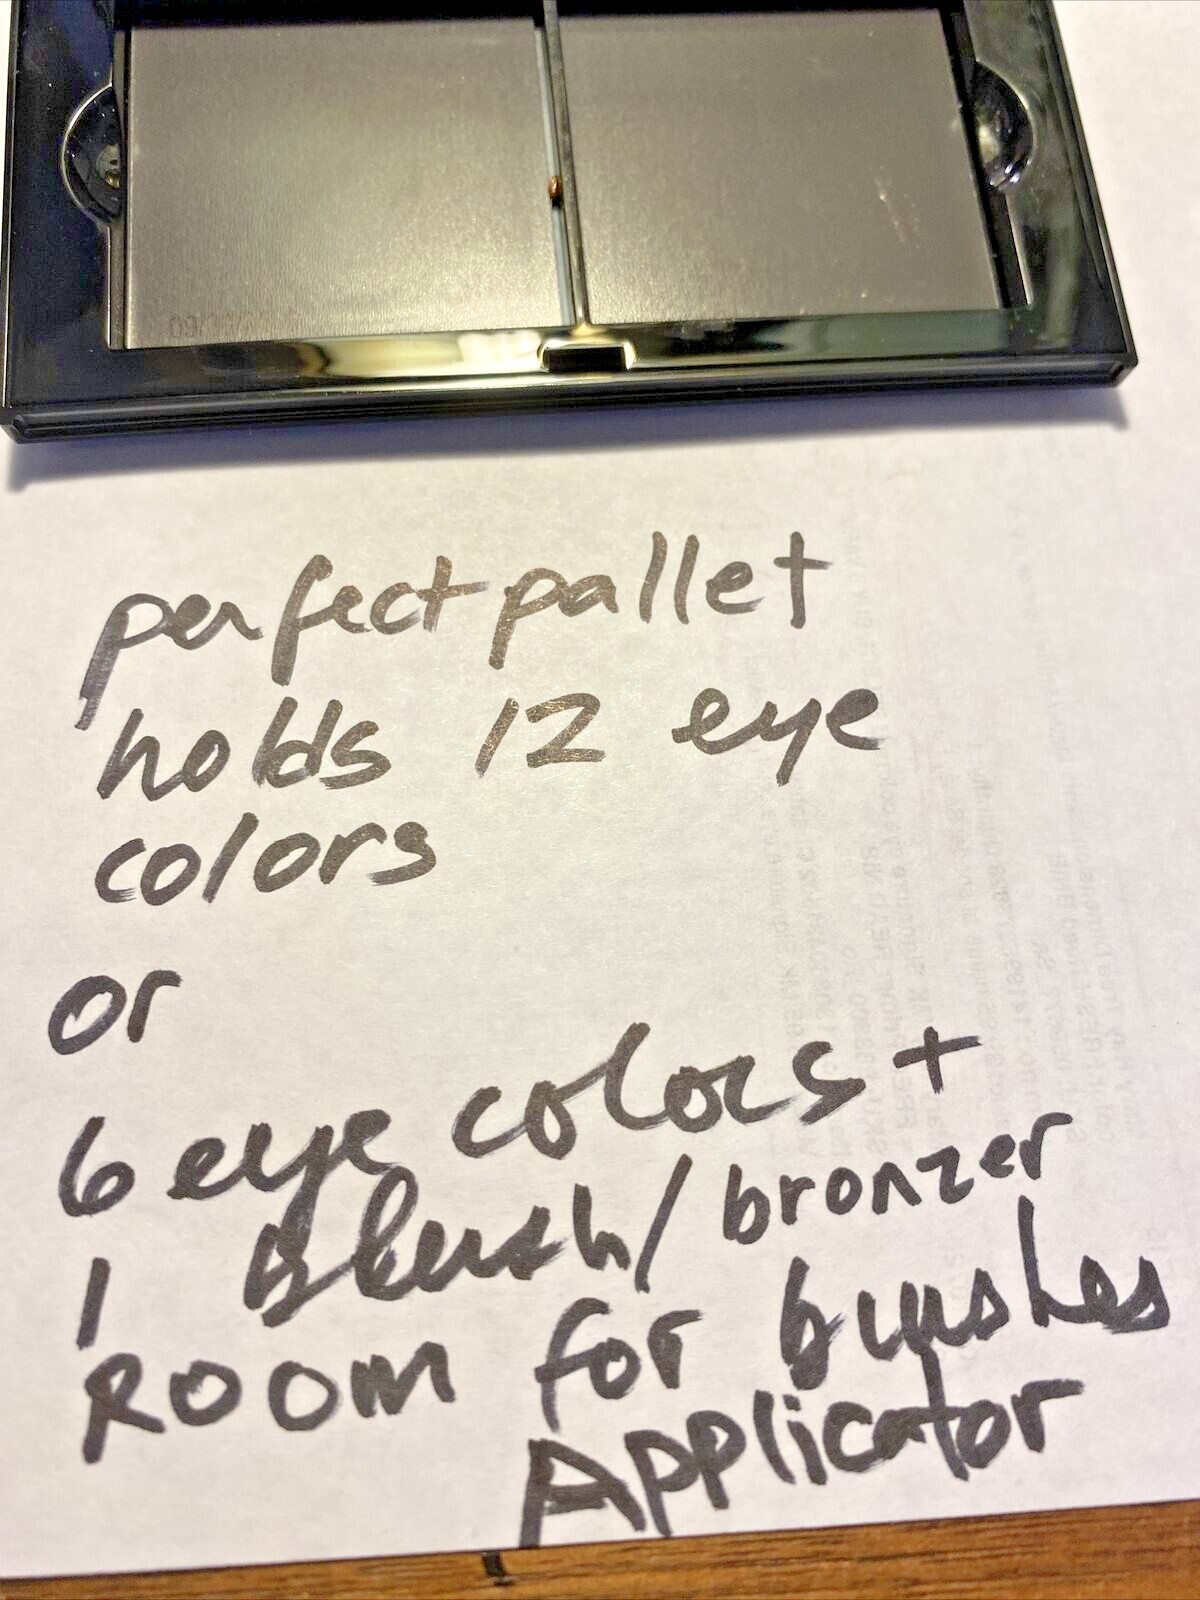 perfect pallet
holds 12 eye
colors
or
6 eye colors +
1 Blush/bronzer
Room for brushes
Applicator